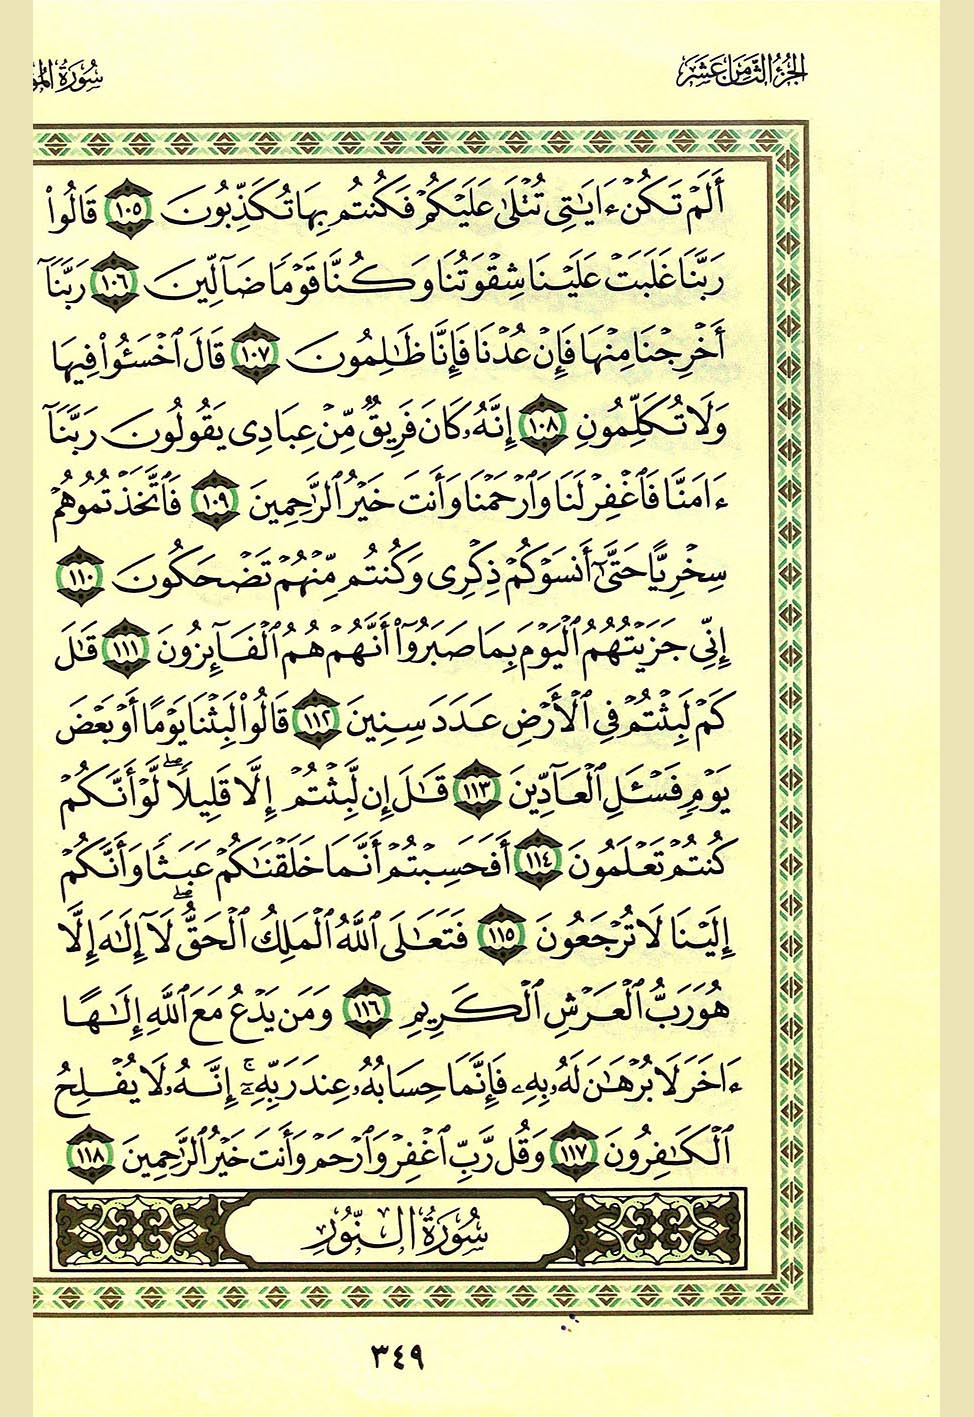 الجزء الثامن عشر
سورة
أَلَمْ تَكُنْ ءَايَٰتِى تُتْلَىٰ عَلَيْكُمْ فَكُنتُم بِهَا تُكَذِّبُونَ ١٠٥ قَالُوا۟
رَبَّنَا غَلَبَتْ عَلَيْنَا شِقْوَتُنَا وَكُنَّا قَوْمًا ضَآلِّينَ ١٠٦ رَبَّنَآ
أَخْرِجْنَا مِنْهَا فَإِنْ عُدْنَا فَإِنَّا ظَٰلِمُونَ ١٠٧ قَالَ ٱخْسَـُٔوا۟ فِيهَا
وَلَا تُكَلِّمُونِ ١٠٨ إِنَّهُۥ كَانَ فَرِيقٌ مِّنْ عِبَادِى يَقُولُونَ رَبَّنَآ
ءَامَنَّا فَٱغْفِرْ لَنَا وَٱرْحَمْنَا وَأَنتَ خَيْرُ ٱلرَّٰحِمِينَ ١٠٩ فَٱتَّخَذْتُمُوهُمْ
سِخْرِيًّا حَتَّىٰٓ أَنسَوْكُمْ ذِكْرِى وَكُنتُم مِّنْهُمْ تَضْحَكُونَ ١١٠
إِنِّى جَزَيْتُهُمُ ٱلْيَوْمَ بِمَا صَبَرُوٓا۟ أَنَّهُمْ هُمُ ٱلْفَآئِزُونَ ١١١ قَٰلَ
كَمْ لَبِثْتُمْ فِى ٱلْأَرْضِ عَدَدَ سِنِينَ ١١٢ قَالُوا۟ لَبِثْنَا يَوْمًا أَوْ بَعْضَ
يَوْمٍ فَسْـَٔلِ ٱلْعَآدِّينَ ١١٣ قَٰلَ إِن لَّبِثْتُمْ إِلَّا قَلِيلًا ۖ لَّوْ أَنَّكُمْ
كُنتُمْ تَعْلَمُونَ ١١٤ أَفَحَسِبْتُمْ أَنَّمَا خَلَقْنَٰكُمْ عَبَثًا وَأَنَّكُمْ
إِلَيْنَا لَا تُرْجَعُونَ ١١٥ فَتَعَٰلَى ٱللَّهُ ٱلْمَلِكُ ٱلْحَقُّ ۖ لَآ إِلَٰهَ إِلَّا
هُوَ رَبُّ ٱلْعَرْشِ ٱلْكَرِيمِ ١١٦ وَمَن يَدْعُ مَعَ ٱللَّهِ إِلَٰهًا
ءَاخَرَ لَا بُرْهَٰنَ لَهُۥ بِهِۦ فَإِنَّمَا حِسَابُهُۥ عِندَ رَبِّهِۦٓ ۚ إِنَّهُۥ لَا يُفْلِحُ
ٱلْكَٰفِرُونَ ١١٧ وَقُل رَّبِّ ٱغْفِرْ وَٱرْحَمْ وَأَنتَ خَيْرُ ٱلرَّٰحِمِينَ ١١٨
سُورَةُ النُّورِ
٣٤٩